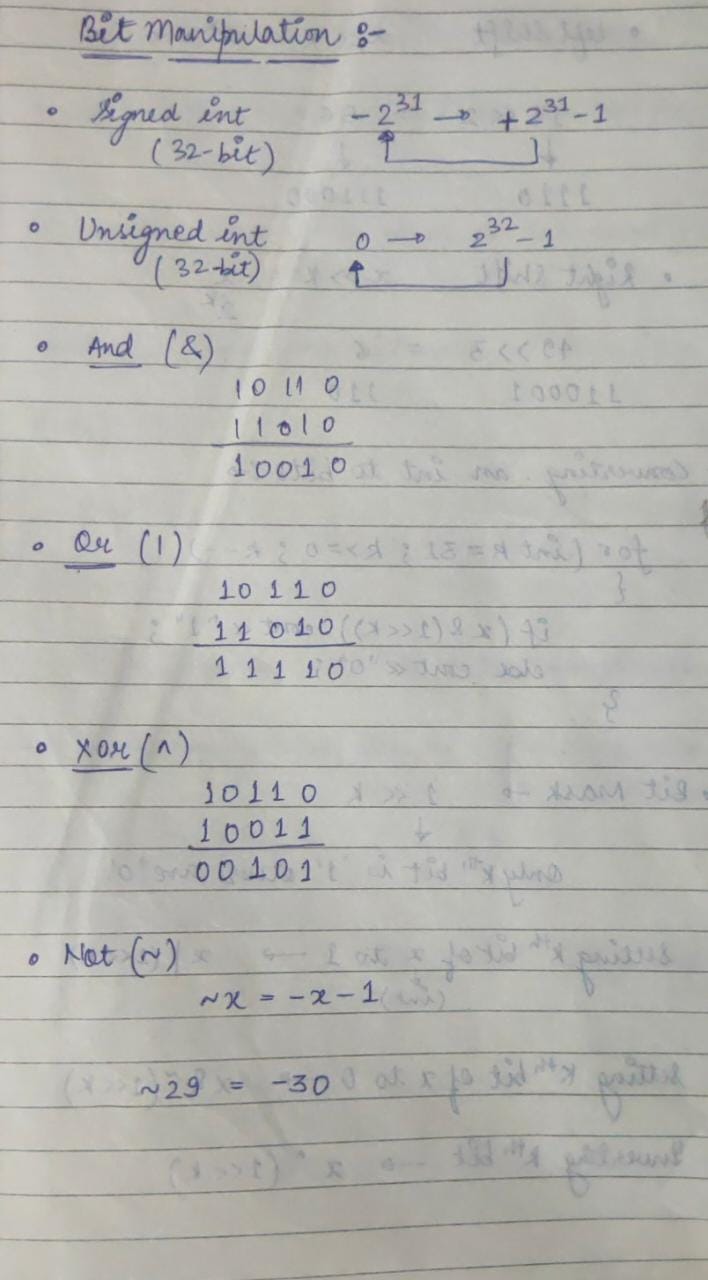 Bit Manipulation :-
• Signed int -2^31 → +2^31-1
(32-bit)
• Unsigned int 0 → 2^32-1
(32-bit)
• And (&)
10110
11010
10010
• Or (|)
10110
11010
11110
• Xor (^)
10110
10011
00101
• Not (~)
~x = -x-1
~29 = -30